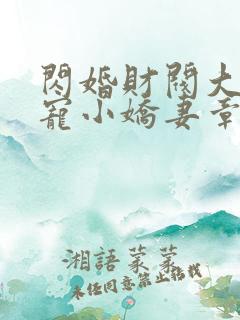 閃婚財閥大
寵小嬌妻章
湘語菓菓
未经同意禁止搭我